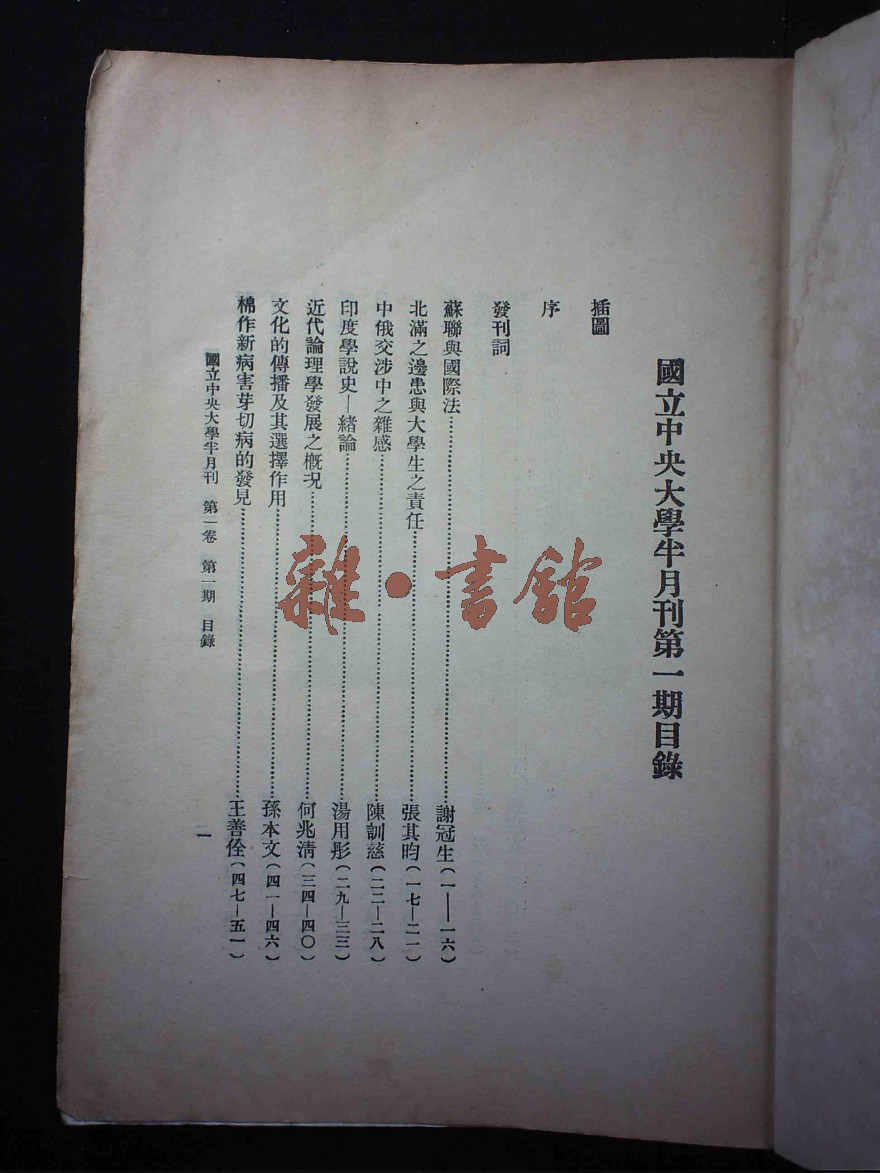 國立中央大學半月刊第一期目錄
插圖
序
發刊詞
蘇聯與國際法……謝冠生(一——一六)
北滿之邊患與大學生之責任……張其昀(一七—二一)
中俄交涉中之雜感……陳訓慈(二二—二八)
印度學說史—緒論……湯用彤(二九—三三)
近代論理學發展之概况……何兆清(三四—四〇)
文化的傳播及其選擇作用……孫本文(四一—四六)
棉作新病害芽切病的發見……王善佺(四七—五一)
國立中央大學半月刊 第一卷 第一期 目錄
一
雜·書館